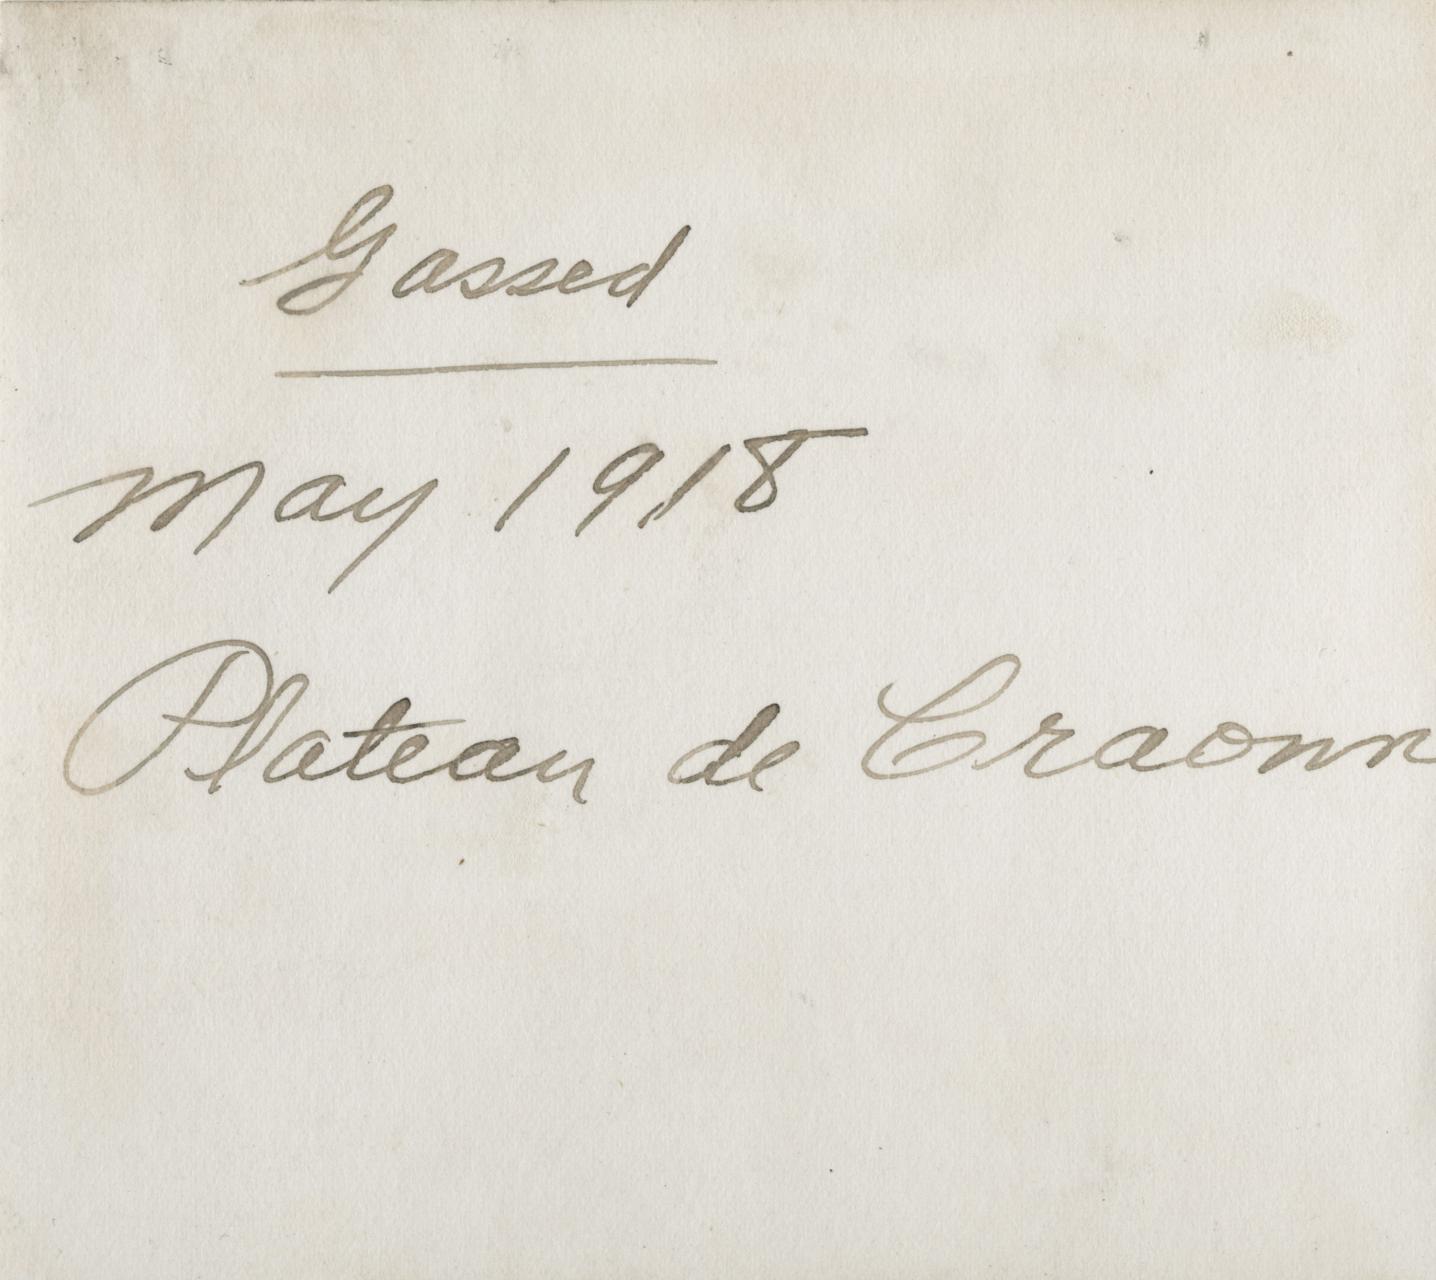 Gassed
May 1918
Plateau de Craonn